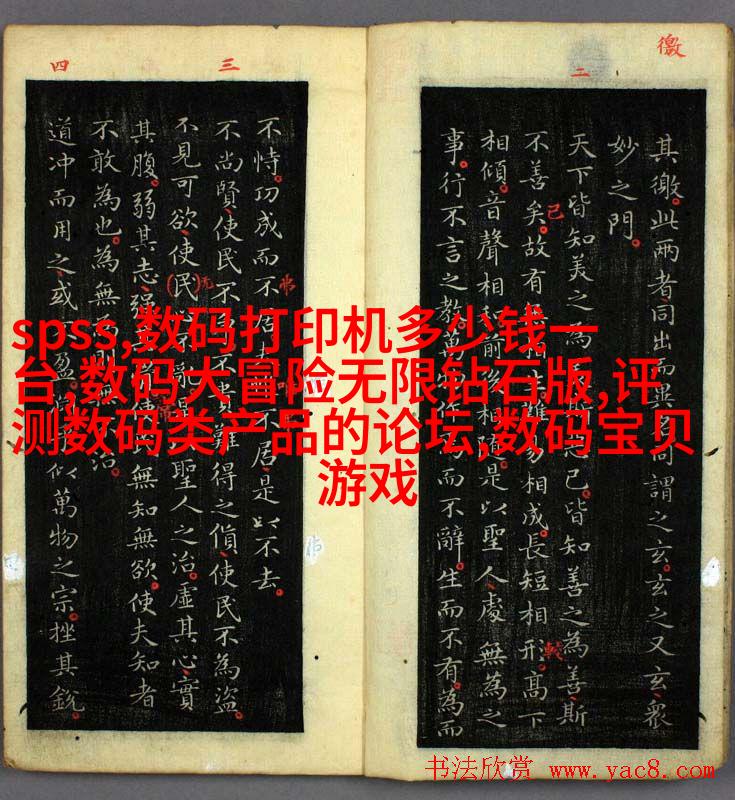 徼
二
三
四
其徼此兩者同出而異名同謂之玄玄之又玄衆
妙之門
天下皆知美之為已皆知善之為善斯
不善矣故有相成長短相形高下
相傾音聲相和是以聖人處無為之
事行不言之教萬而不辭生而不有為而
不恃功成而不居不居是以不去
不尚賢使民不不貴難得之貨使民不為盜
不見可欲使民亂聖人之治虛其心實
其腹弱其志強使民無知無欲使夫知者
不敢為也為無治
道冲而用之或盈似萬物之宗挫其銳
spss,数码打印机多少钱一
台,数码大冒险无限钻石版,评
测数码类产品的论坛,数码宝贝
游戏
书法欣赏 www.yac8.com